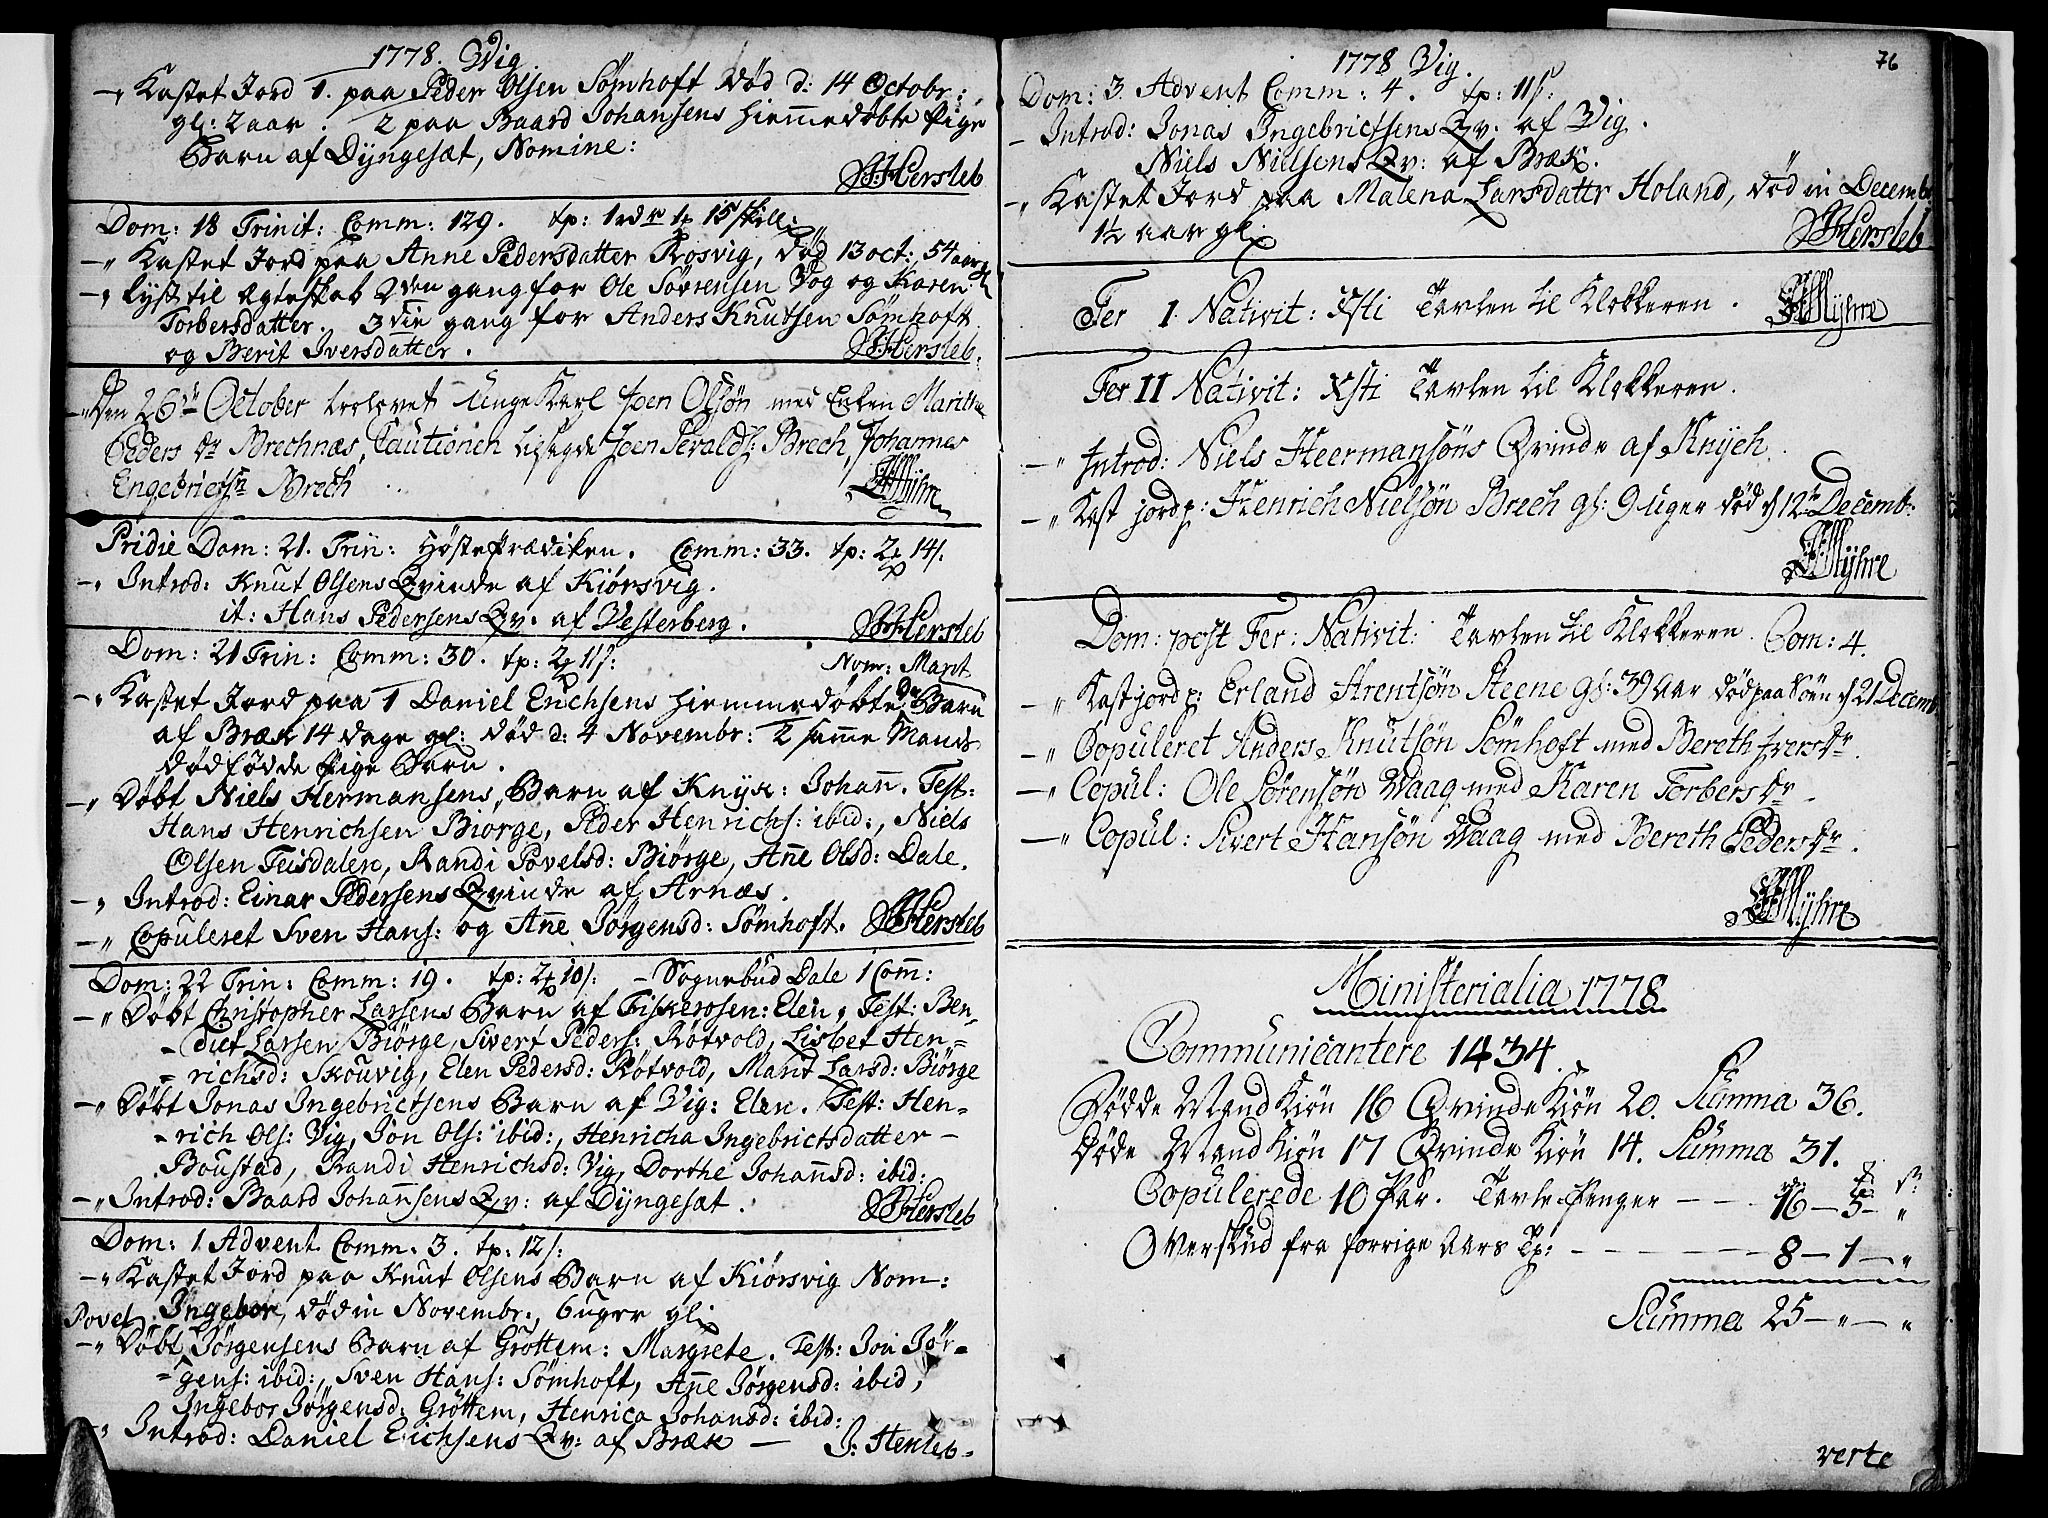 1778. Vig
-„ Kastet Jord 1. paa Peder Olsen Sømhoft død d: 14 Octobr:
gl: 2 aar. 2 paa Baard Johansens hiemmedøbte Pige
Barn af Dyngesæt, Nomine:
J: Hersleb
Dom: 18 Trinit: Comm: 129. tp: 1 rdr 1 15 skill:
-„ Kastet Jord paa Anne Pedersdatter Kosvig, død 13 oct: 54 aar gl
-„ Lyst til Ægteskab 2den gang for Ole Sørensen Vog og Karen
Torbersdatter. 3die gang for Anders Knutsen Sømhoft
og Berit Iversdatter.
J: Hersleb.
-„ Den 26de October trolovet Unge Karl Joen Olsøn med Enken Marithe
Peders dr Brechnæs, Cautionen tilsagde Joen Sevalds: Brech, Johannes
Engebrictsn Brech
Myhre
Pridie Dom: 21. Trin: Høsteprædiken. Comm: 33. tp: 2 14/.
-„ Introd: Knut Olsens Qvinde af Kiørsvig.
it: Hans Pedersens Qv. af Vesterberg.
J: Hersleb
Dom: 21 Trin: Comm: 30. tp: 2 11/:
Nom: Marit
-„ Kastet Jord paa 1 Daniel Erichsens hiemmedøbte Barn
af Bræk 14 dage gl: død d: 4 Novembr: 2 samme Mands
dødfødde Pige Barn.
-„ Døbt Niels Hermansens, Barn af Knyk: Johan. Test:
Hans Henrichsen Biørge, Peder Henrichs: ibid:, Niels
Olsen Teisdalen, Randi Povelsd: Biørge, Ane Olsd: Dale.
-„ Introd: Einar Pedersens Qvinde af Arnæs.
-„ Copuleret Sven Hans: og Ane Jørgensd: Sømhoft.
J: Hersleb
Dom: 22 Trin: Comm: 19. tp: 2 10/: - Sognebud Dale 1 Comm:
-„ Døbt Christopher Larsens Barn af Fiskerosen: Elen, Test: Ben-
- dict Larsen Biørge, Sivert Peders: Røtvold, Lisbet Hen-
= richsd: Skouvig, Elen Pedersd: Røtvold, Marit Larsd: Biørge
-„ Døbt Jonas Ingebrictsens Barn af Vig: Elen. Test: Hen-
- rich Ols: Vig, Jon Ols: ibid:, Henricha Ingebrictsdatter -
Boustad, Randi Henrichsd: Vig, Dorthe Johannsd: ibid:
-„ Introd: Baard Johansens Qv: af Dyngesæt.
J: Hersleb
Dom: 1 Advent Comm: 3. tp: 12/:
-„ Kastet Jord paa Knut Olsens Barn af Kiørsvig Nom:
Ingebor, død in Novembr:, 6 uger gl:
Povel
-„ Døbt Jørgensens Barn af Grøttem: Margrete. Test: Jon Jør-
= gens: ibid:, Sven Hans: Sømhoft, Ane Jørgensd: ibid,
Ingebor Jørgensd: Grøttem, Henrica Johansd: ibid:
-„ Introd: Daniel Erichsens Qv: af Bræk — J: Hersleb-
1778 Vig.
76
Dom: 3 Advent Comm: 4. tp: 11/:
- Introd: Jonas Ingebrictsens Qv: af Vig.
Niels Nielsens Qv: af Bræk.
-„ Kastet Jord paa Malena Larsdattr Holand, død in Decemb
1½ aar gl:
J: Hersleb
Fer I. Nativit: Xsti Tavlen til Klokkeren.
Myhre
Fer II Nativit: Xsti Tavlen til Klokkeren.
-„ Introd: Niels Heermansøns Qvinde af Knych.
-„ Kast jord p: Henrich Nielsøn Brech gl: 9 uger død d 12te Decemb:
Myhre
Dom: post Fer: Nativit: Tavlen til Klokkeren. Com: 4.
-„ Kast jord p: Erland Arentsøn Steene gl: 39 Aar død paa Søen d 21 Decemb
-„ Copuleret Anders Knutsøn Sømhoft med Bereth Ivers dr.
-„ Copul: Ole Sørensøn Vaag med Karen Torbers dr.
-„ Copul: Sivert Hansøn Vaag med Bereth Peders dr.
Myhre
Ministerialia 1778
Communicantere 1434.
Fødde MandKiøn 16 QvindeKiøn 20. Summa 36.
Døde MandKiøn 17 Qvinde Kiøn 14. Summa 31.
Copulerede 10 Par. Tavle Penger — — 16 — 5 — „
Overskud fra forrige Aars Tp: — — — 8 — 1 — „
Summa 25 — „ — „
verte